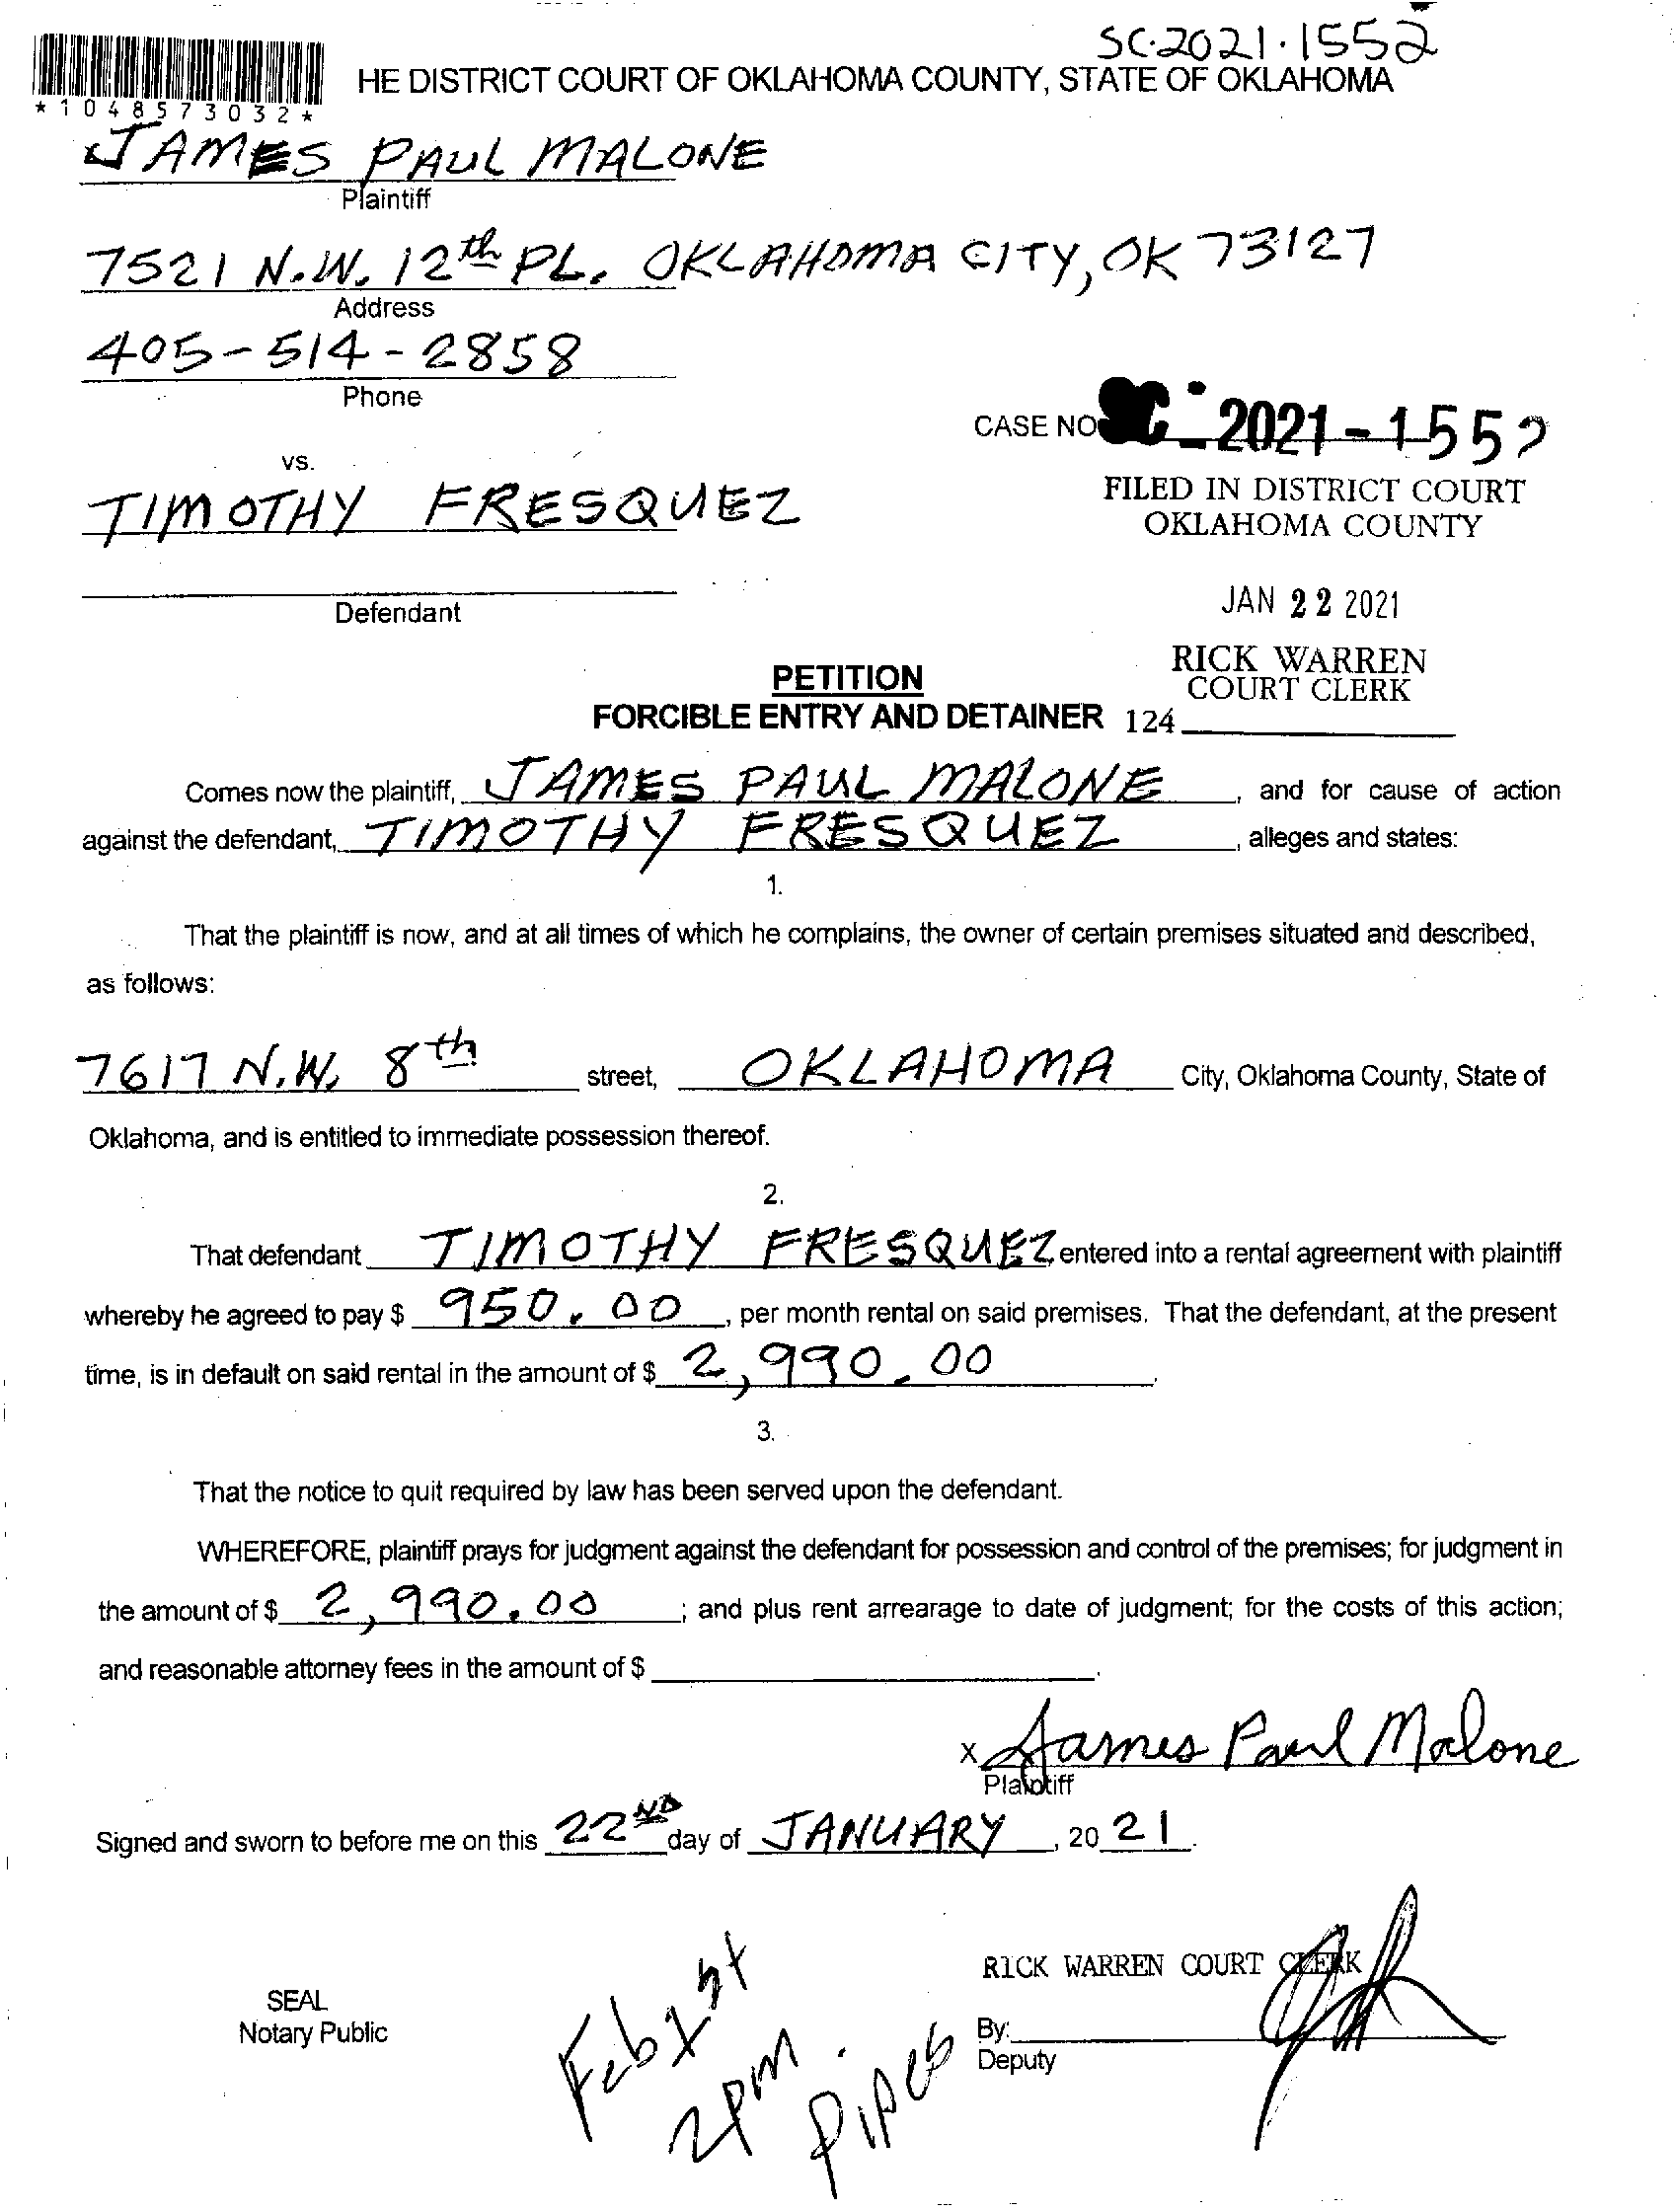 SC-2021-1552
*1048573032*
HE DISTRICT COURT OF OKLAHOMA COUNTY, STATE OF OKLAHOMA
JAMES PAUL MALONE
Plaintiff
7521 N.W. 12th PL. OKLAHOMA CITY, OK 73127
Address
405-514-2858
Phone
CASE NO SC-2021-1552
vs.
TIMOTHY FRESQUEZ
FILED IN DISTRICT COURT
OKLAHOMA COUNTY
Defendant
JAN 22 2021
RICK WARREN
COURT CLERK
PETITION
FORCIBLE ENTRY AND DETAINER 124
Comes now the plaintiff, JAMES PAUL MALONE, and for cause of action
against the defendant, TIMOTHY FRESQUEZ, alleges and states:
1.
That the plaintiff is now, and at all times of which he complains, the owner of certain premises situated and described,
as follows:
7617 N.W. 8th street, OKLAHOMA City, Oklahoma County, State of
Oklahoma, and is entitled to immediate possession thereof.
2.
That defendant TIMOTHY FRESQUEZ entered into a rental agreement with plaintiff
whereby he agreed to pay $ 950.00, per month rental on said premises. That the defendant, at the present
time, is in default on said rental in the amount of $ 2,990.00.
3.
That the notice to quit required by law has been served upon the defendant.
WHEREFORE, plaintiff prays for judgment against the defendant for possession and control of the premises; for judgment in
the amount of $ 2,990.00; and plus rent arrearage to date of judgment; for the costs of this action;
and reasonable attorney fees in the amount of $ .
x James Paul Malone
Plaintiff
Signed and sworn to before me on this 22ND day of JANUARY, 2021.
RICK WARREN COURT CLERK
SEAL
Notary Public
By:
Deputy
Feb 1st
2pm
Pipes